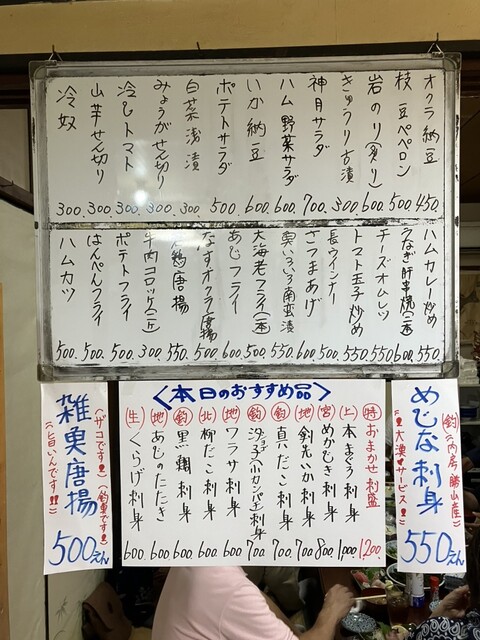 オクラ納豆 450.
枝豆ペペロン 500.
岩のり(炙り) 600.
きゅうり古漬 300
神月サラダ 700.
ハム野菜サラダ 600.
いか納豆 600.
ポテトサラダ 500.
白菜浅漬 300
みょうがせん切り 300.
冷しトマト 300.
山芋せん切り 300.
冷奴 300.
ハムカレー炒め 550.
うなぎ肝串焼(二本) 600.
チーズオムレツ 550.
トマト玉子炒め 550.
長ウインナー 500.
さつまあげ 600.
いろいろ南蛮漬 550.
大海老フライ(一本) 500.
あじフライ 600.
なすオクラ唐揚 500.
鶏唐揚 550.
牛肉コロッケ(二ケ) 300
ポテトフライ 500.
はんぺんフライ 500.
ハムカツ 500.
めじな刺身
(釣)(内房 勝山産)
!!大漁♥サービス!!
550えん
<本日のおすすめ品>
(特)おまかせ刺盛 1,200.
(上)本まぐろ刺身 1,000.
(宮)めかじき刺身 800.
(地)剣先いか刺身 700.
(釣)真だこ刺身 700.
(釣)ショゴ(カンパチ)刺身 700.
(地)ワラサ刺身 600.
(北)柳だこ刺身 600.
(釣)黒鯛刺身 600.
(地)あじのたたき 600.
(生)くらげ刺身 600.
雑魚唐揚
(ザコです!!)(釣魚です!!)
(旨いんです!!)
500えん